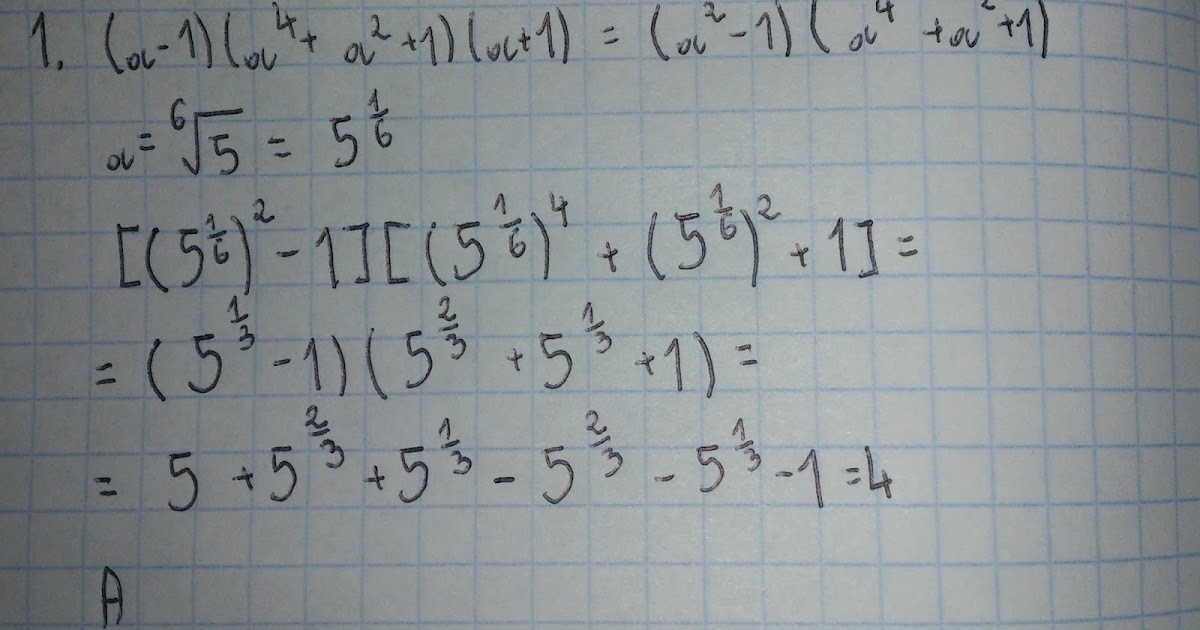 1. (a-1)(a⁴+ a²+1)(a+1) = (a²-1)( a⁴ +a²+1)
a= ⁶√5 = 5^(1/6)
[(5^(1/6))²-1][(5^(1/6))⁴ + (5^(1/6))² + 1] =
= (5^(1/3) -1)(5^(2/3) + 5^(1/3) +1) =
= 5 + 5^(2/3) + 5^(1/3) - 5^(2/3) - 5^(1/3) - 1 = 4
A